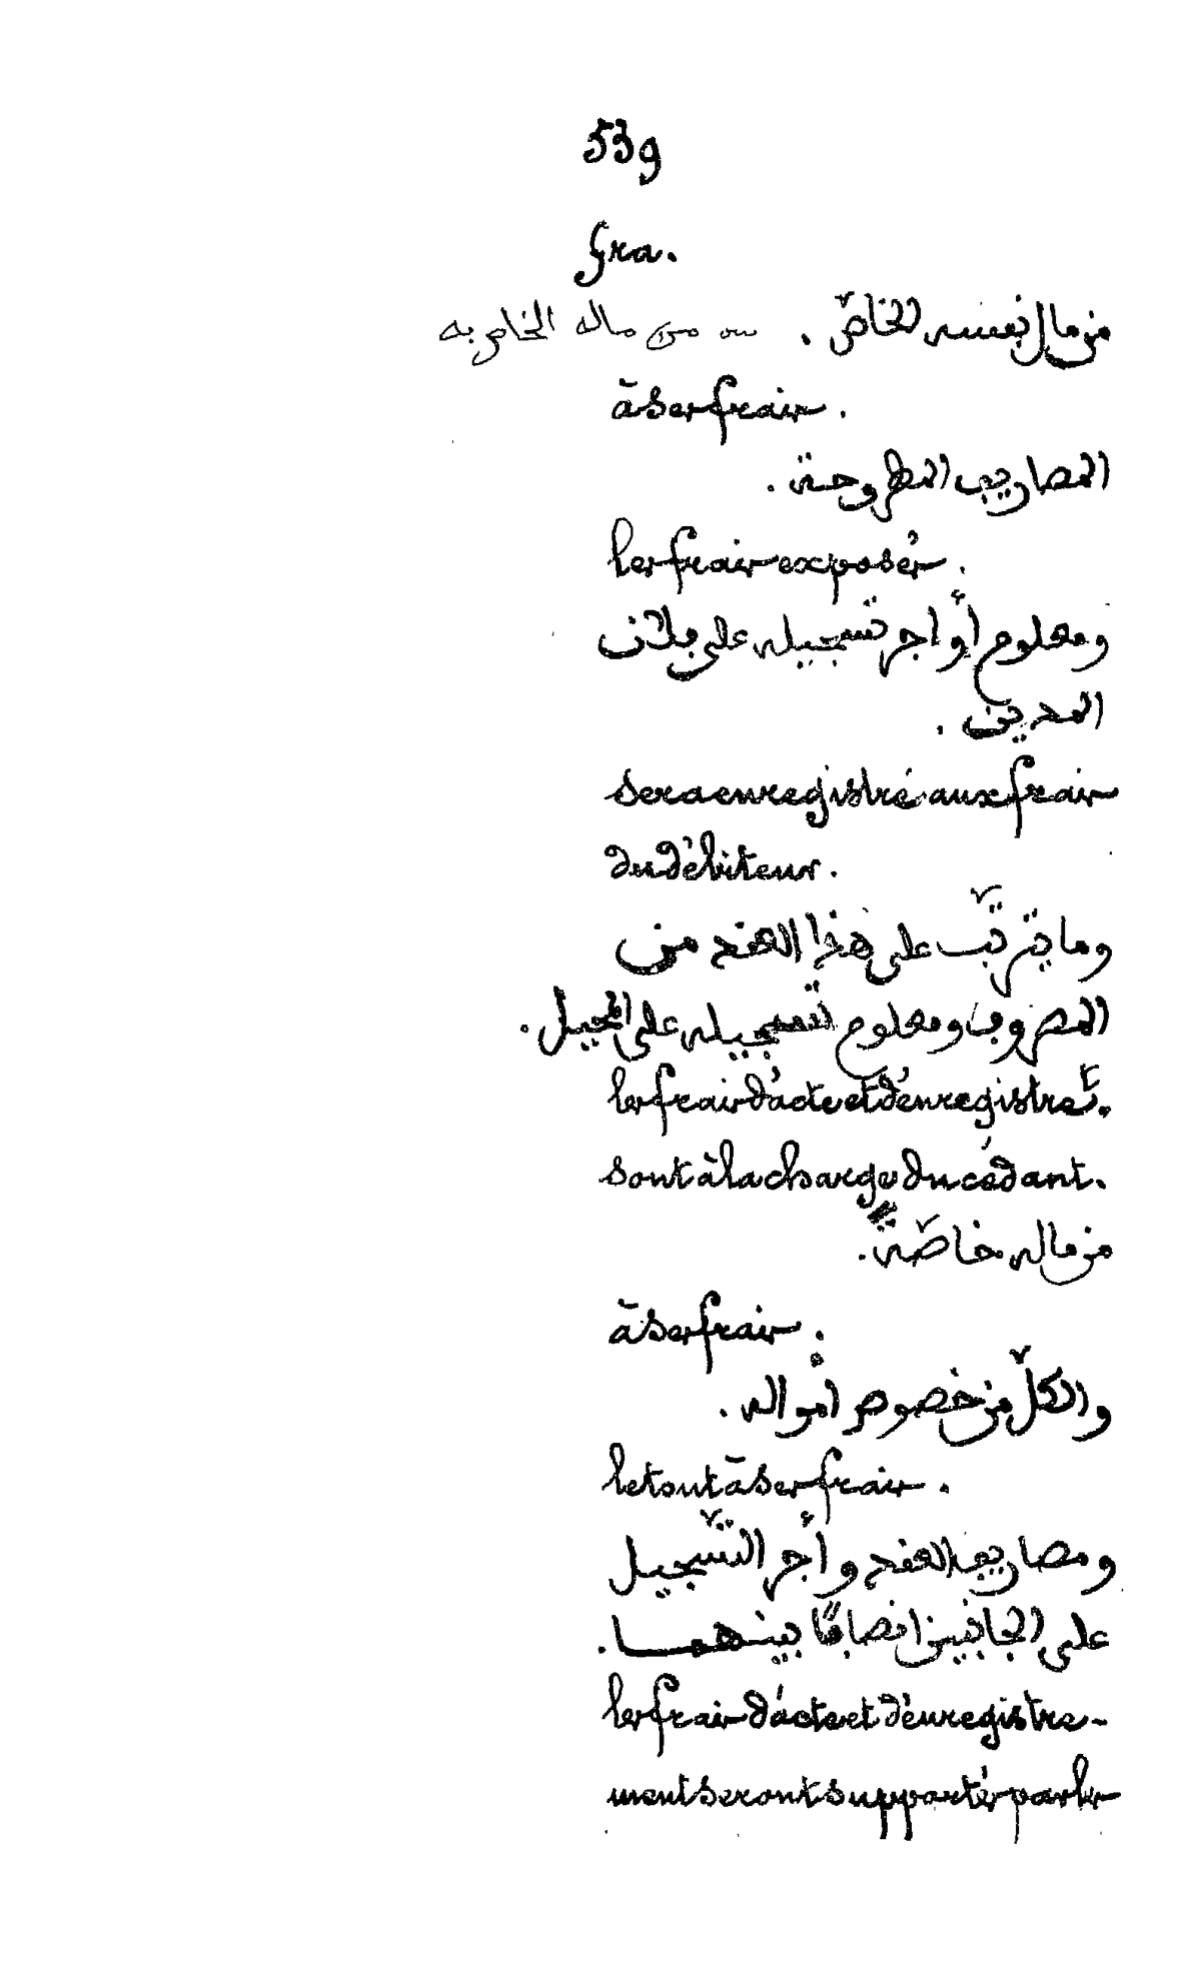 539
Fra.
من مال نفسه الخاصّ . ـــ من ماله الخاص به
à ses frais.
المصاريف المطروحة .
les frais exposés.
ومعلوم أواجر تسجيله على فلان
المدين .
sera enregistré aux frais
du débiteur.
وما يترتّب على هذا العقد من
المصروف ومعلوم تسجيله على المحيل .
les frais d'acte et d'enregistret.
sont à la charge du cédant.
من ماله خاصّة .
à ses frais.
والكلّ من خصوص أمواله .
le tout à ses frais.
ومصاريف العقد وأجر التّسجيل
على الجانبين انصافًا بينهما .
les frais d'acte et d'enregistre-
ment seront supportés par les